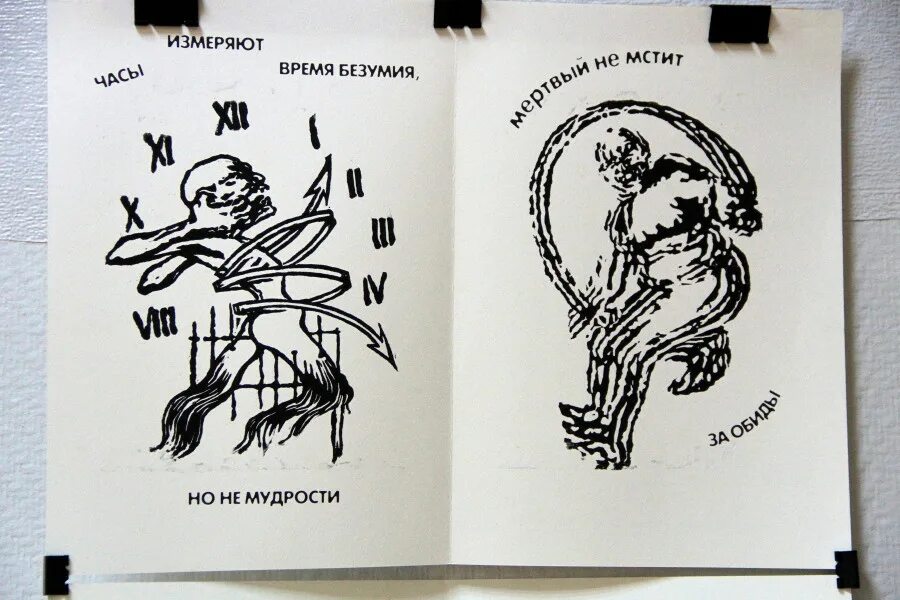 ЧАСЫ
ИЗМЕРЯЮТ
ВРЕМЯ БЕЗУМИЯ,
XII
XI
I
X
II
III
IV
VIII
НО НЕ МУДРОСТИ
мертвый не мстит
ЗА ОБИДЫ